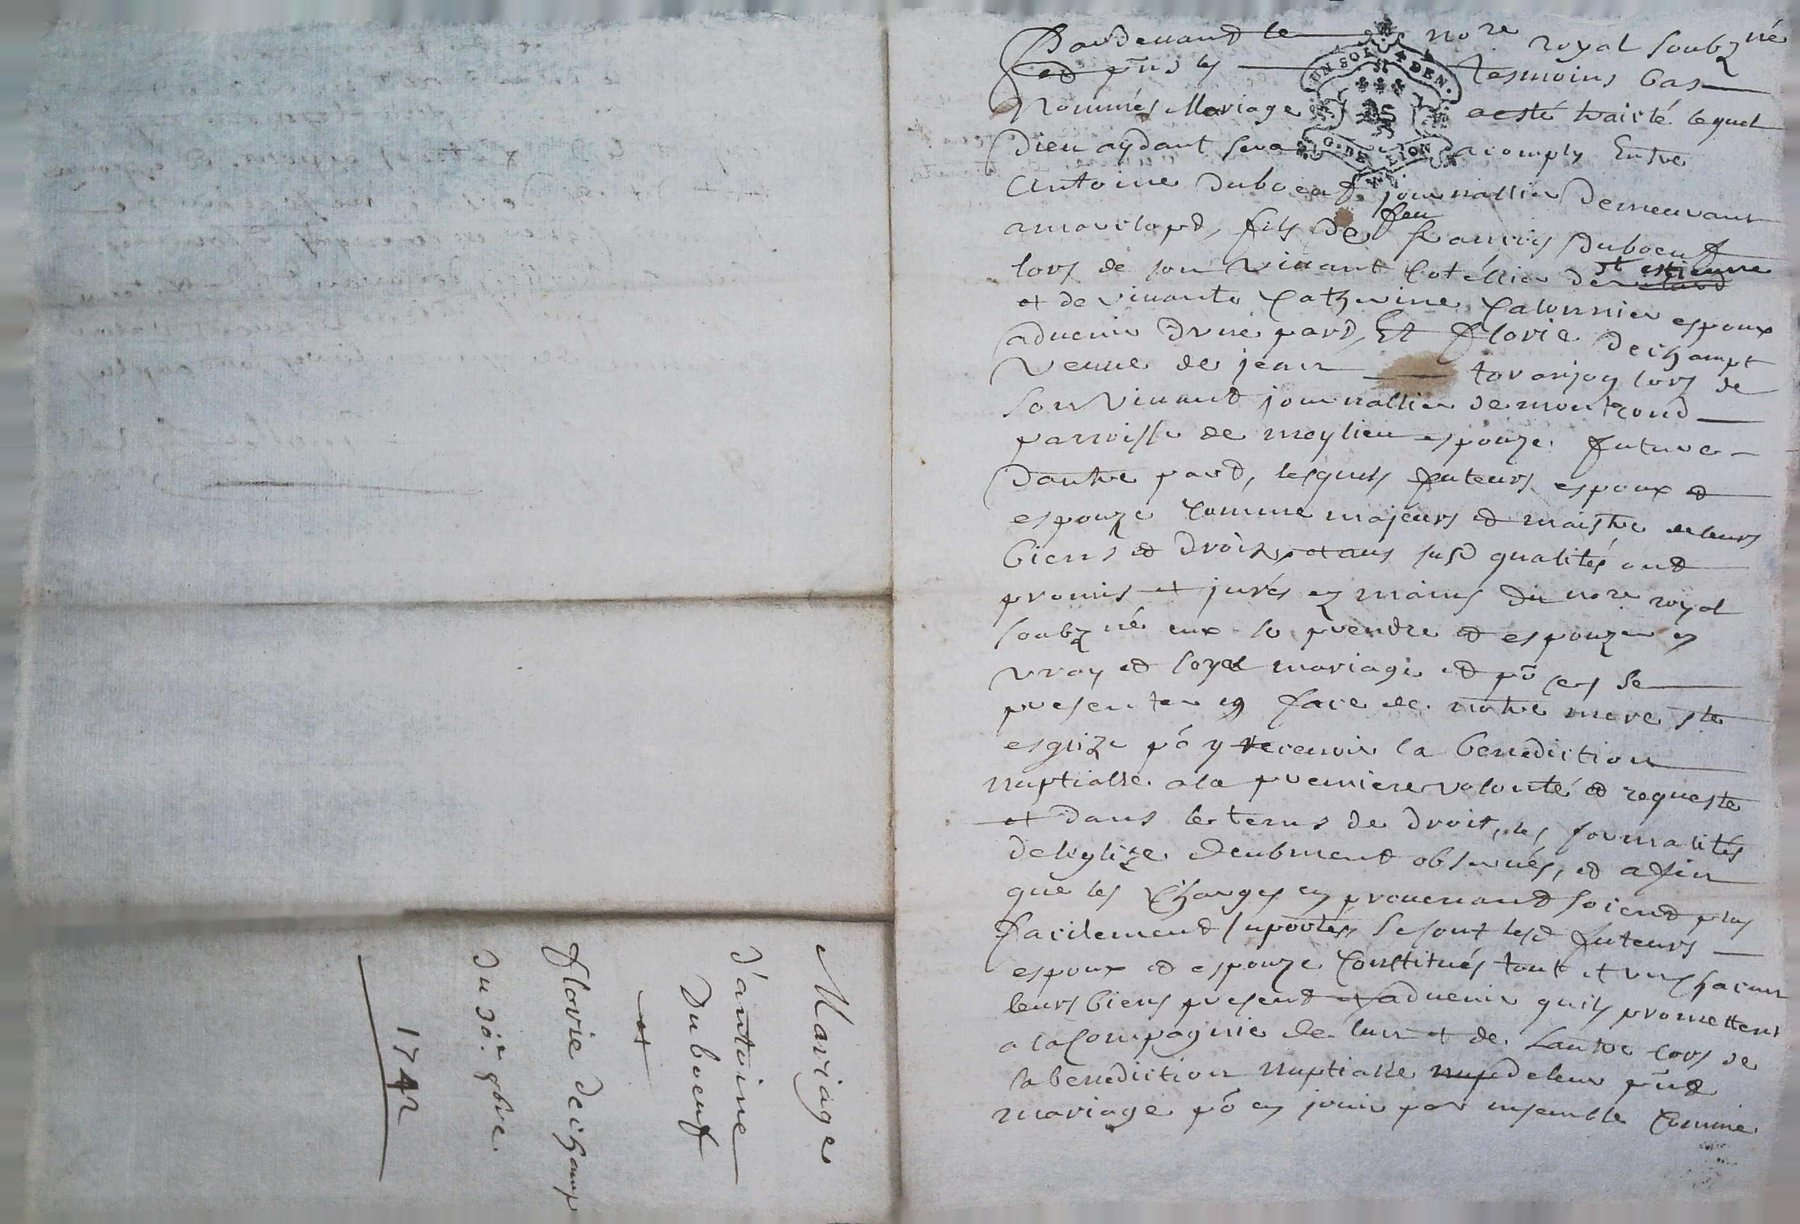 Mariage
d'antoine
Duboeuf
et
florie dechamp
du 30e 9bre
1742
Pardevant le nore royal soubzné
et pnts les tesmoins bas
nommés Mariage a esté traicté lequel
dieu aydant sera acomply Entre
UN SOL 4 DEN.
G. DE LION
antoine duboeuf journallier demeurant
fils de feu francois duboeuf
lors de son vivant de st estienne
et de vivante Catherine espoux
advenir d'une part, Et florie dechampt
veuve de jean lors de
son vivant journallier de montrond
parroisse de meylieu espouze future
dautre part, lesquels futeurs espoux et
espouze comme majeurs et maistre de leurs
biens et droits, et aux susd qualités ont
promis et jurés es mains du nore royal
soubzné eux se prendre et espouzer en
vray et loyal mariage et po ces se
presenter en face de notre mere ste
esglize po y recevoir la benediction
nuptialle a la premiere volonté et requeste
et dans le tems de droit, les formalités
de leglize deubment observés, et afin
que les charges en provenant soient plus
facilement suportés se sont lesd futeurs
espoux et espouze constitués tout et uns chacun
leurs biens present et advenir quils promettent
a la compagnie de lun et de lautre lors de
la benediction nuptialle nup de leur pnt
mariage po en jouir par ensemble comme